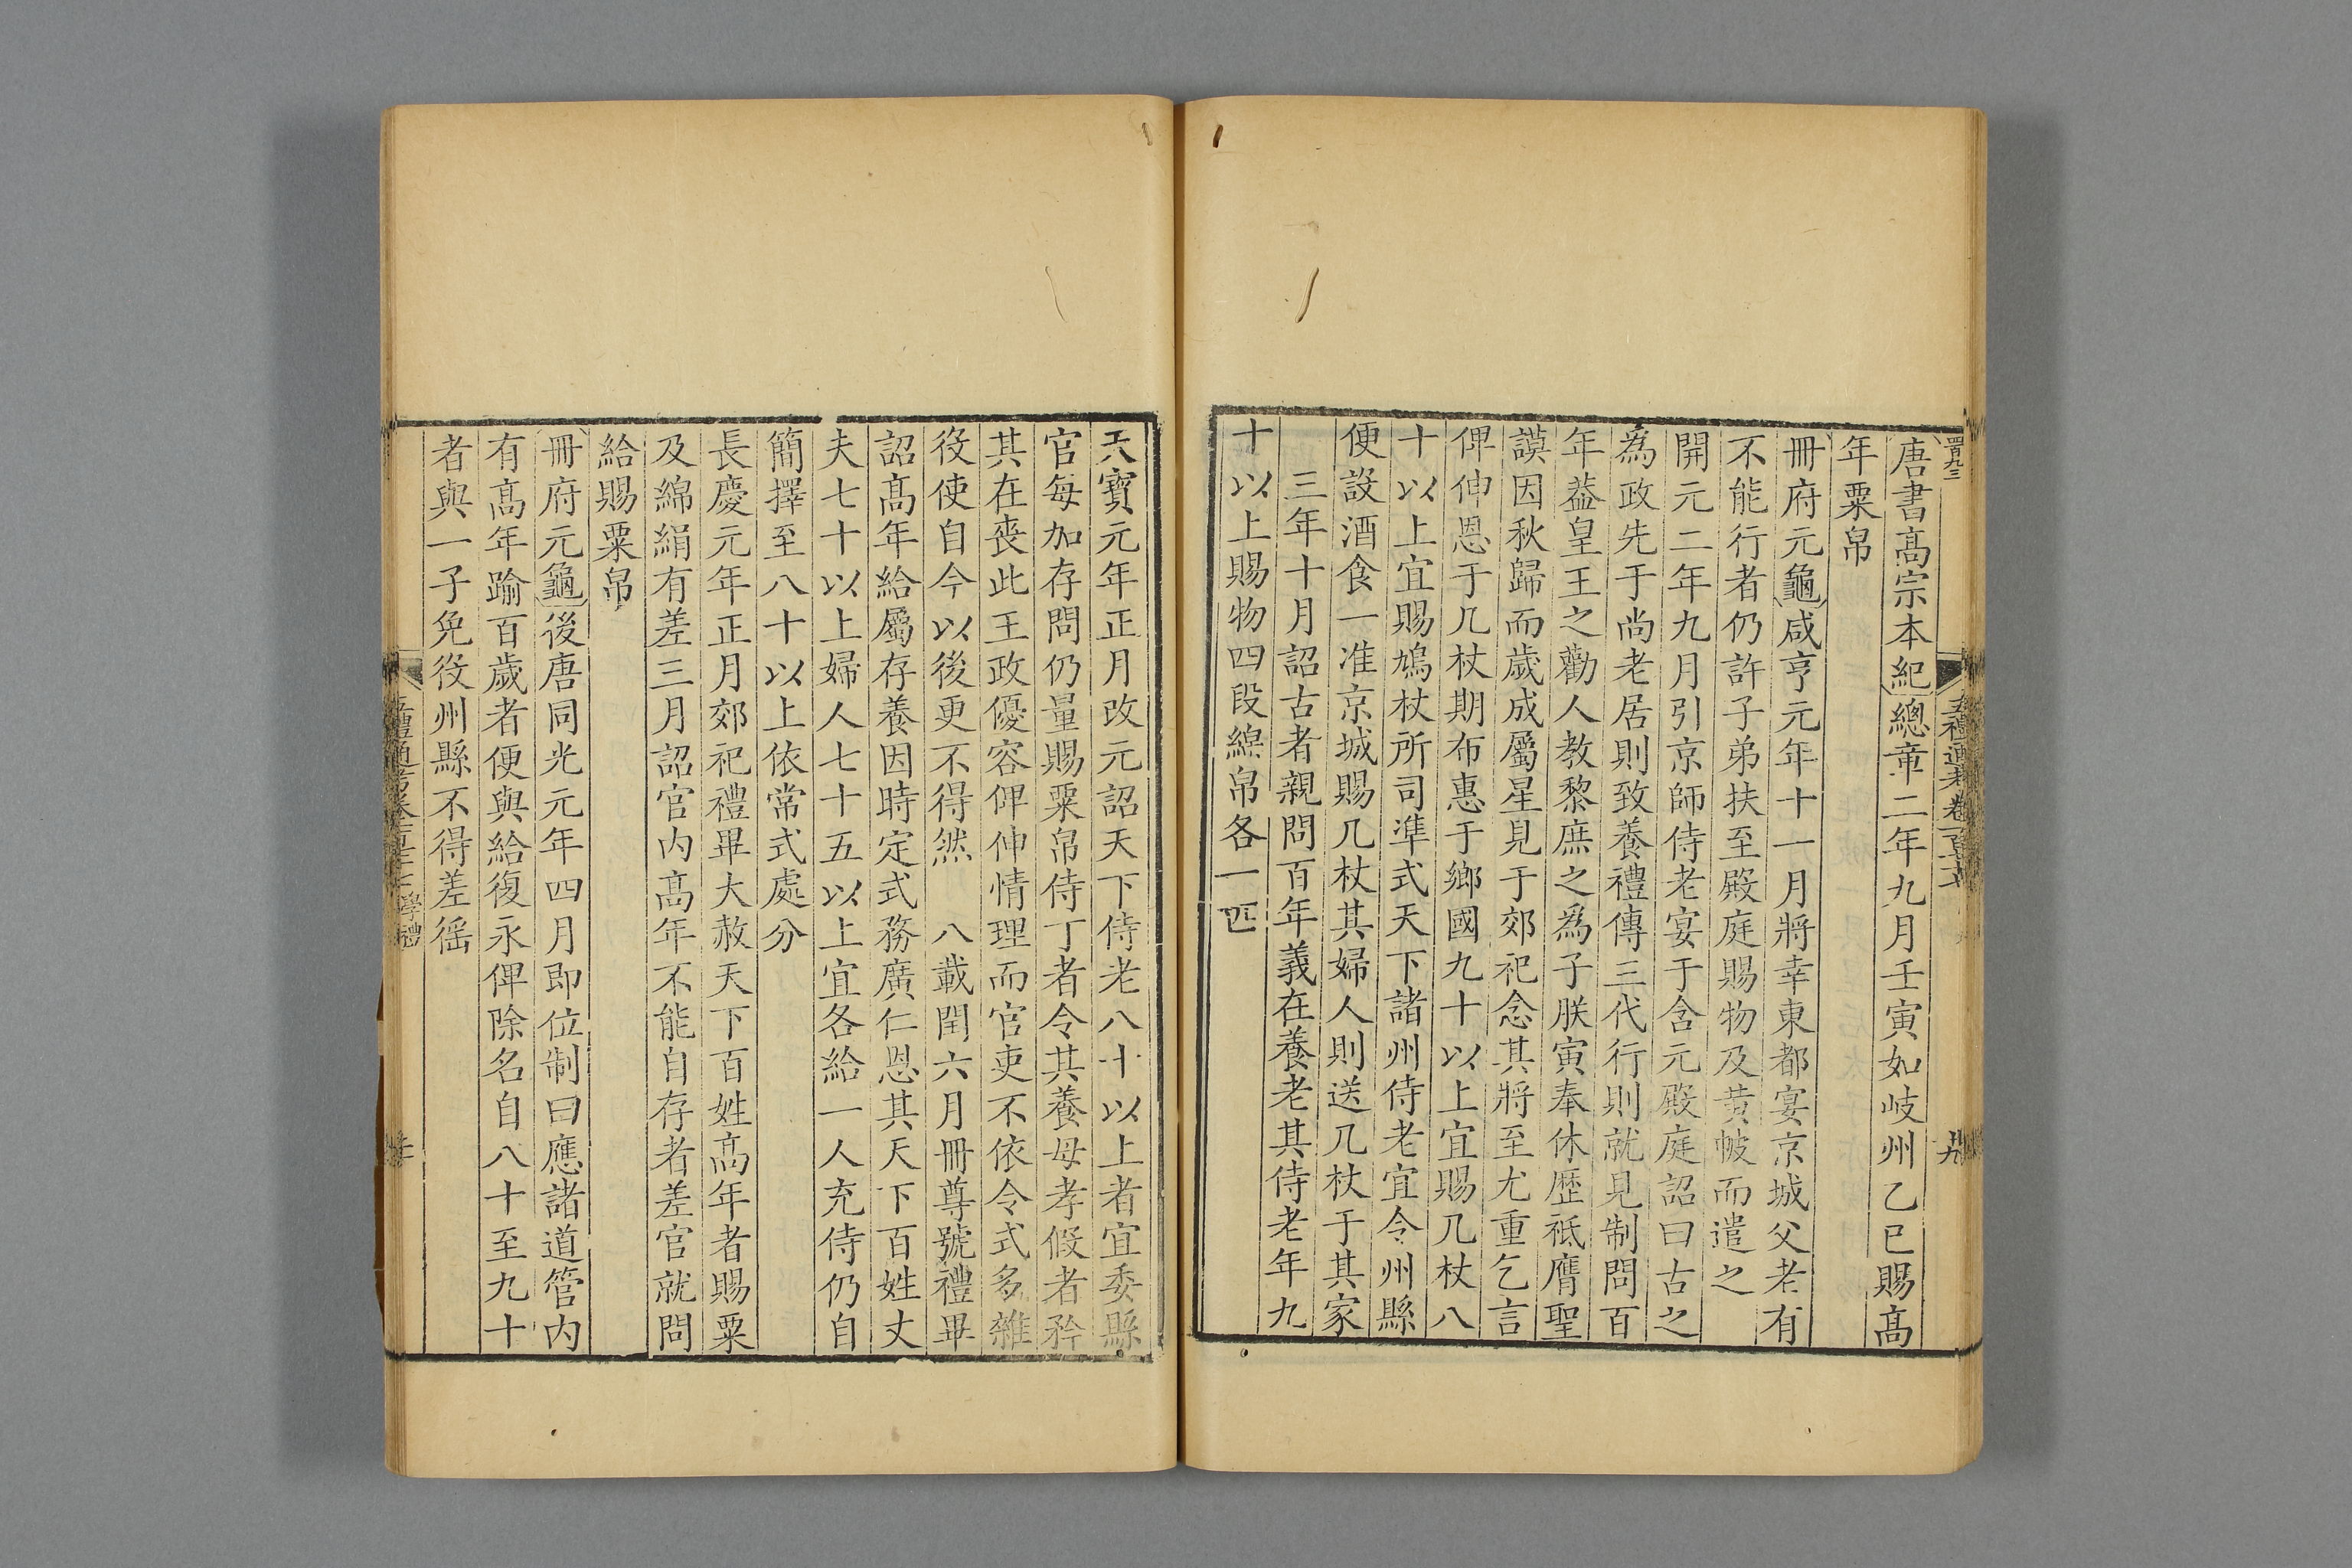 唐書高宗本紀總章二年九月壬寅如岐州乙巳賜高
年粟帛
冊府元龜咸亨元年十一月將幸東都宴京城父老有
不能行者仍許子弟扶至殿庭賜物及黃帔而遣之
開元二年九月引京師侍老宴于含元殿庭詔曰古之
為政先于尚老居則致養禮傳三代行則就見制問百
年葢皇王之勸人教黎庶之為子朕寅奉休歷祗膺聖
謨因秋歸而歲成屬星見于郊祀念其將至尤重乞言
俾伸恩于几杖期布惠于鄉國九十以上宜賜几杖八
十以上宜賜鳩杖所司準式天下諸州侍老宜令州縣
便設酒食一准京城賜几杖其婦人則送几杖于其家
三年十月詔古者親問百年義在養老其侍老年九
十以上賜物四段綿帛各一匹
天寶元年正月改元詔天下侍老八十以上者宜委縣
官每加存問仍量賜粟帛侍丁者令其養母孝假者矜
其在喪此王政優容俾伸情理而官吏不依令式多雜
役使自今以後更不得然　八載閏六月冊尊號禮畢
詔高年給屬存養因時定式務廣仁恩其天下百姓丈
夫七十以上婦人七十五以上宜各給一人充侍仍自
簡擇至八十以上依常式處分
長慶元年正月郊祀禮畢大赦天下百姓高年者賜粟
及綿絹有差三月詔官內高年不能自存者差官就問
給賜粟帛
冊府元龜後唐同光元年四月即位制曰應諸道管內
有高年踰百歲者便與給復永俾除名自八十至九十
者與一子免役州縣不得差徭
五禮通考卷
學禮